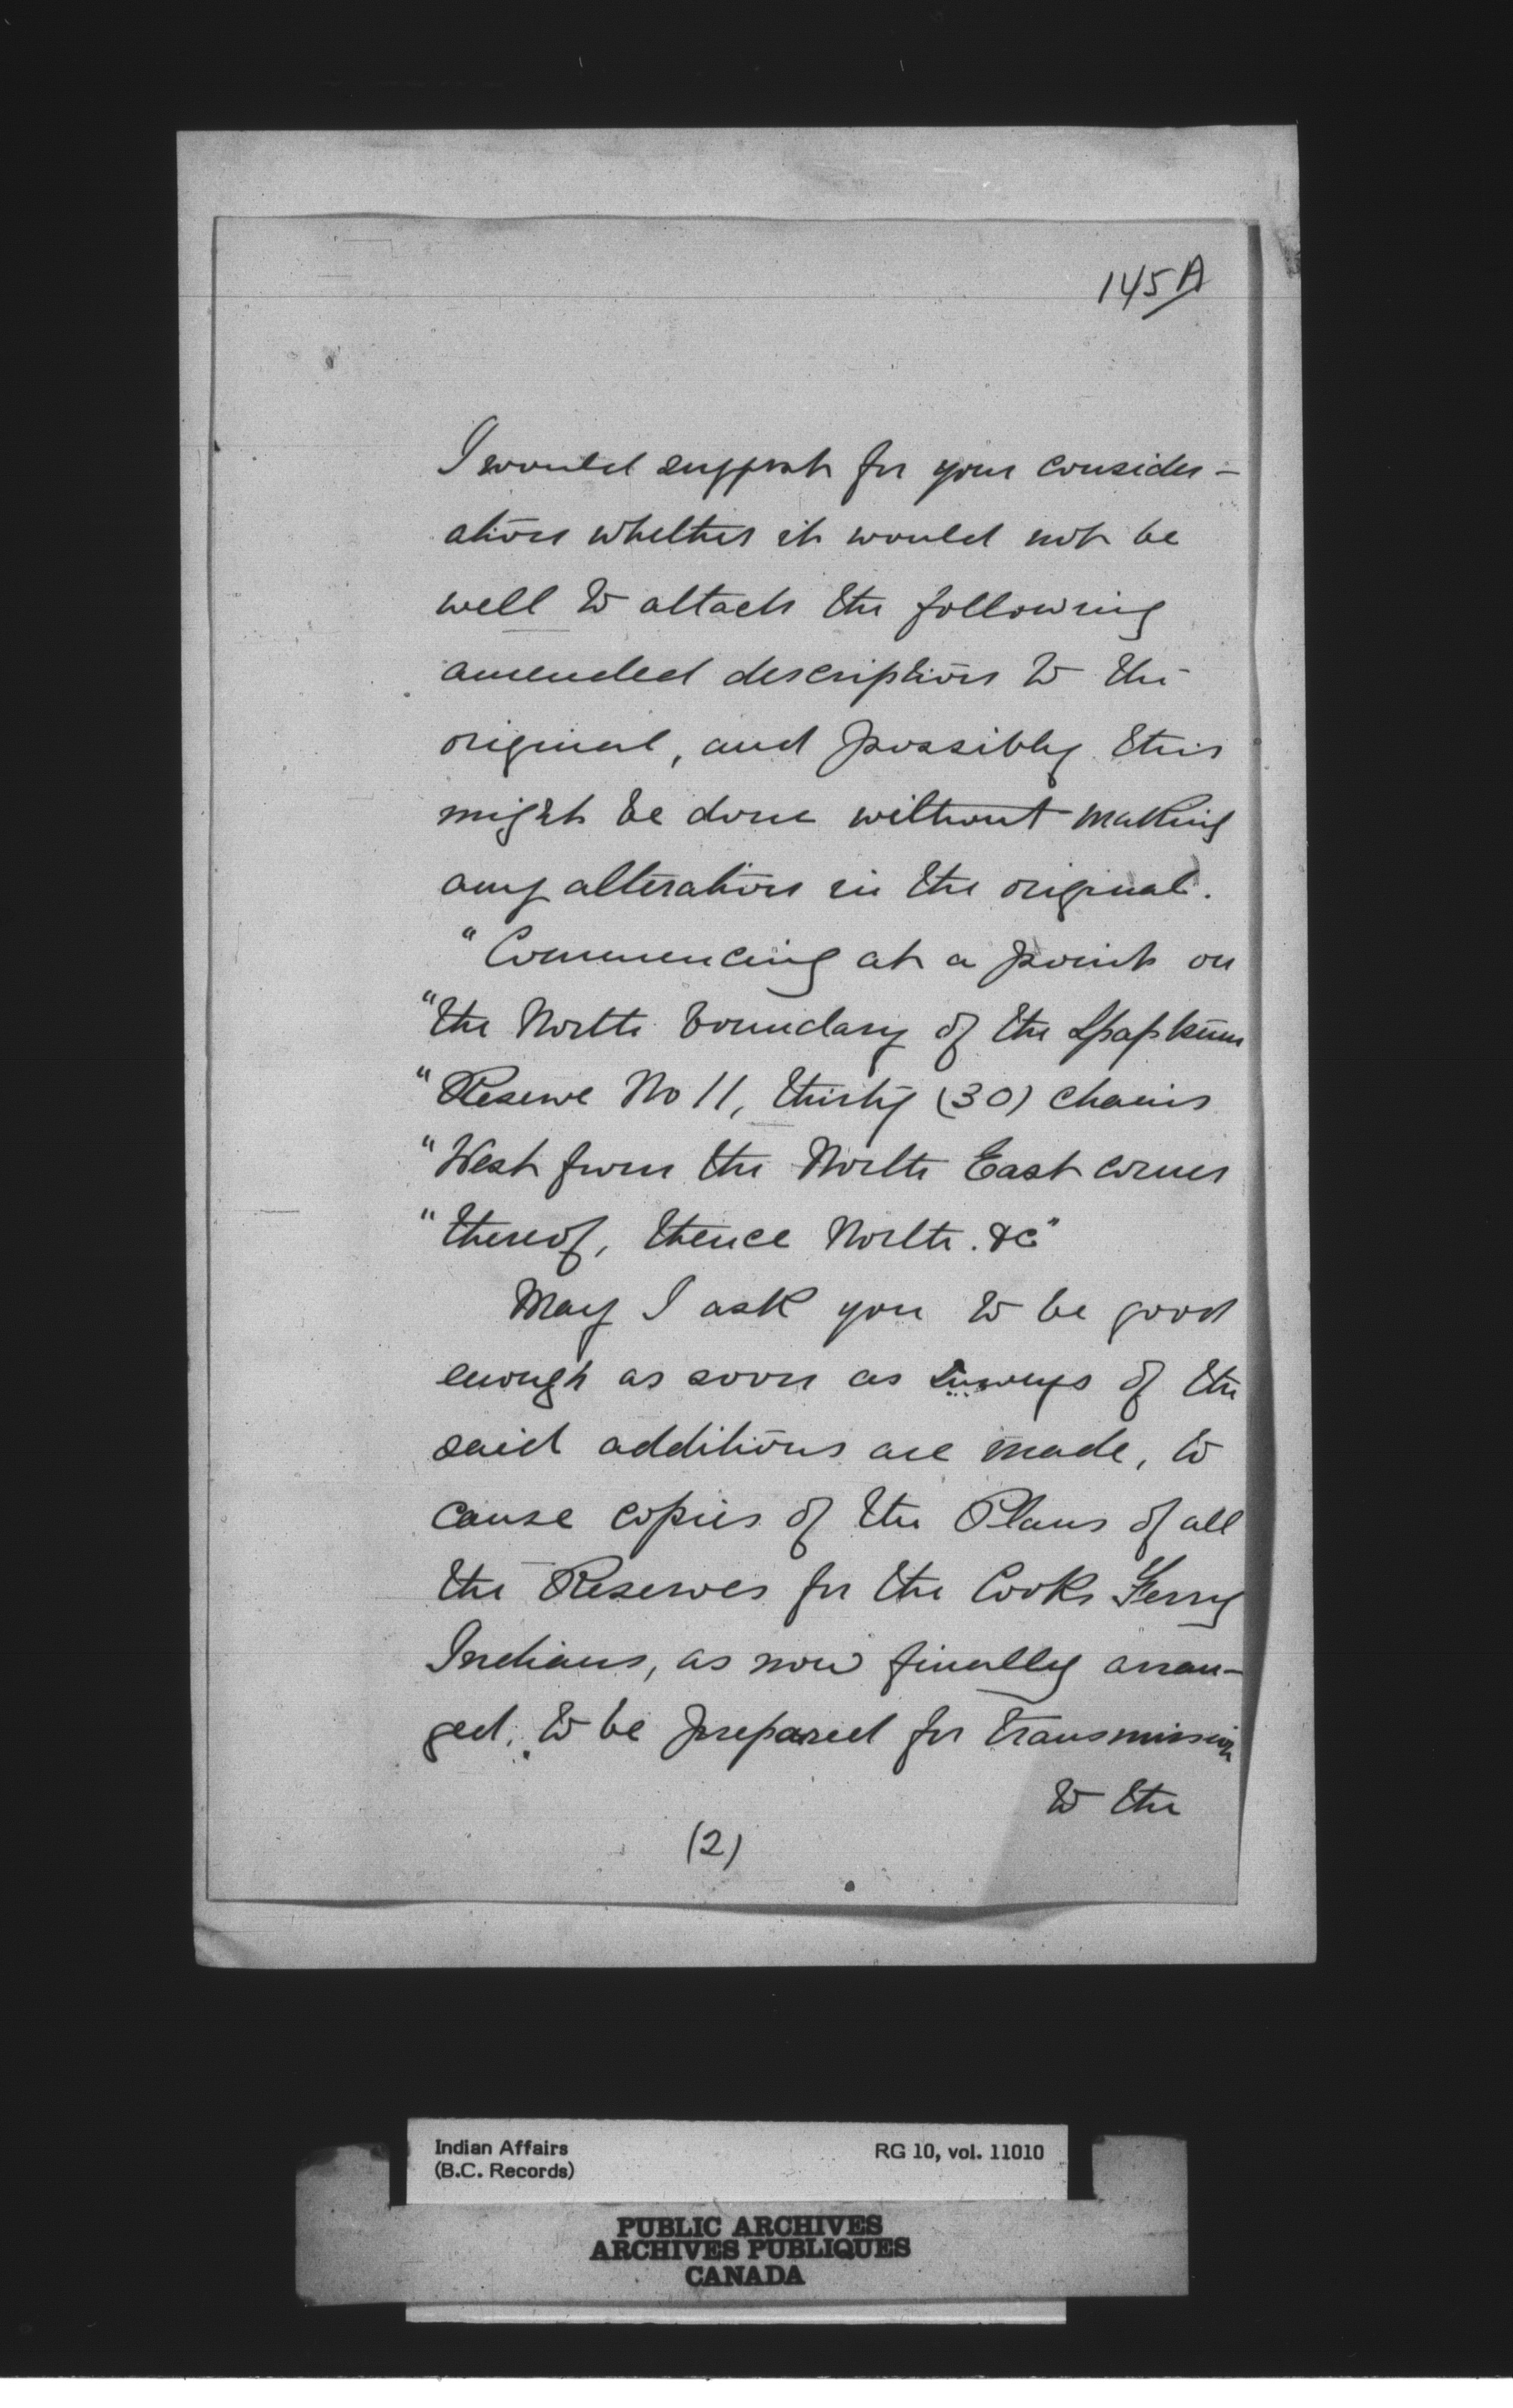 145A
I would suggest for your consider-
ation whether it would not be
well to attach the following
amended description to the
original, and possibly this
might be done without making
any alteration in the original.
"Commencing at a point on
"the North boundary of the Spapkum
"Reserve No 11, thirty (30) chains
"West from the North East corner
"thereof, thence North. &c"
May I ask you to be good
enough as soon as surveys of the
said additions are made, to
cause copies of the Plans of all
the Reserves for the Cooks Ferry
Indians, as now finally arran-
ged, to be prepared for transmission
to the
(2)
Indian Affairs
(B.C. Records)
RG 10, vol. 11010
PUBLIC ARCHIVES
ARCHIVES PUBLIQUES
CANADA